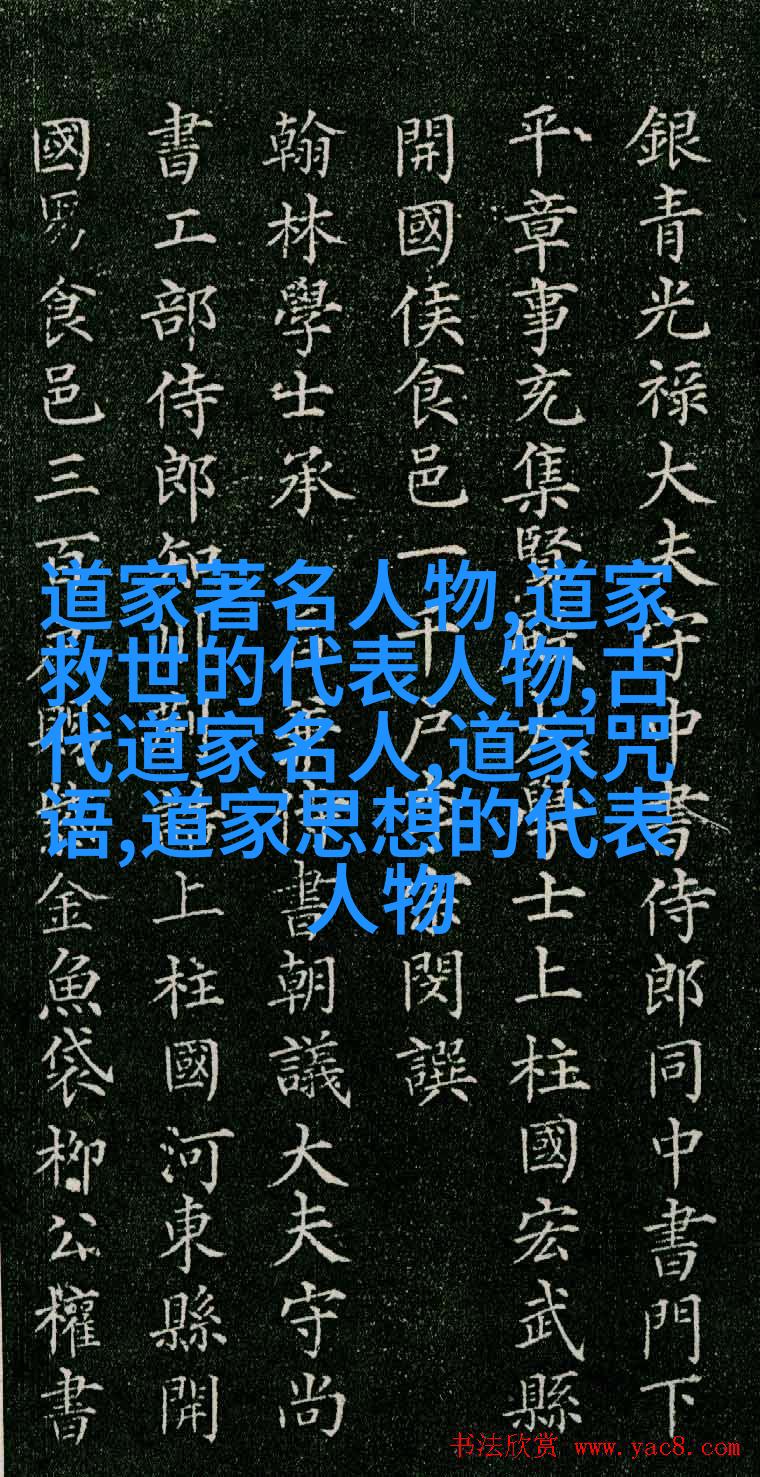 銀青光禄大夫守中書侍郎同中書門下
平章事充集賢大學士上柱國宏武縣
開國侯食邑一千户閔譔
翰林學士承書朝議大夫守尚
書工部侍郎知上柱國河東縣開
國男食邑三百賜金魚袋柳公權書
道家著名人物,道家
救世的代表人物,古
代道家名人,道家咒
语,道家思想的代表
人物
书法欣赏 www.yac8.com